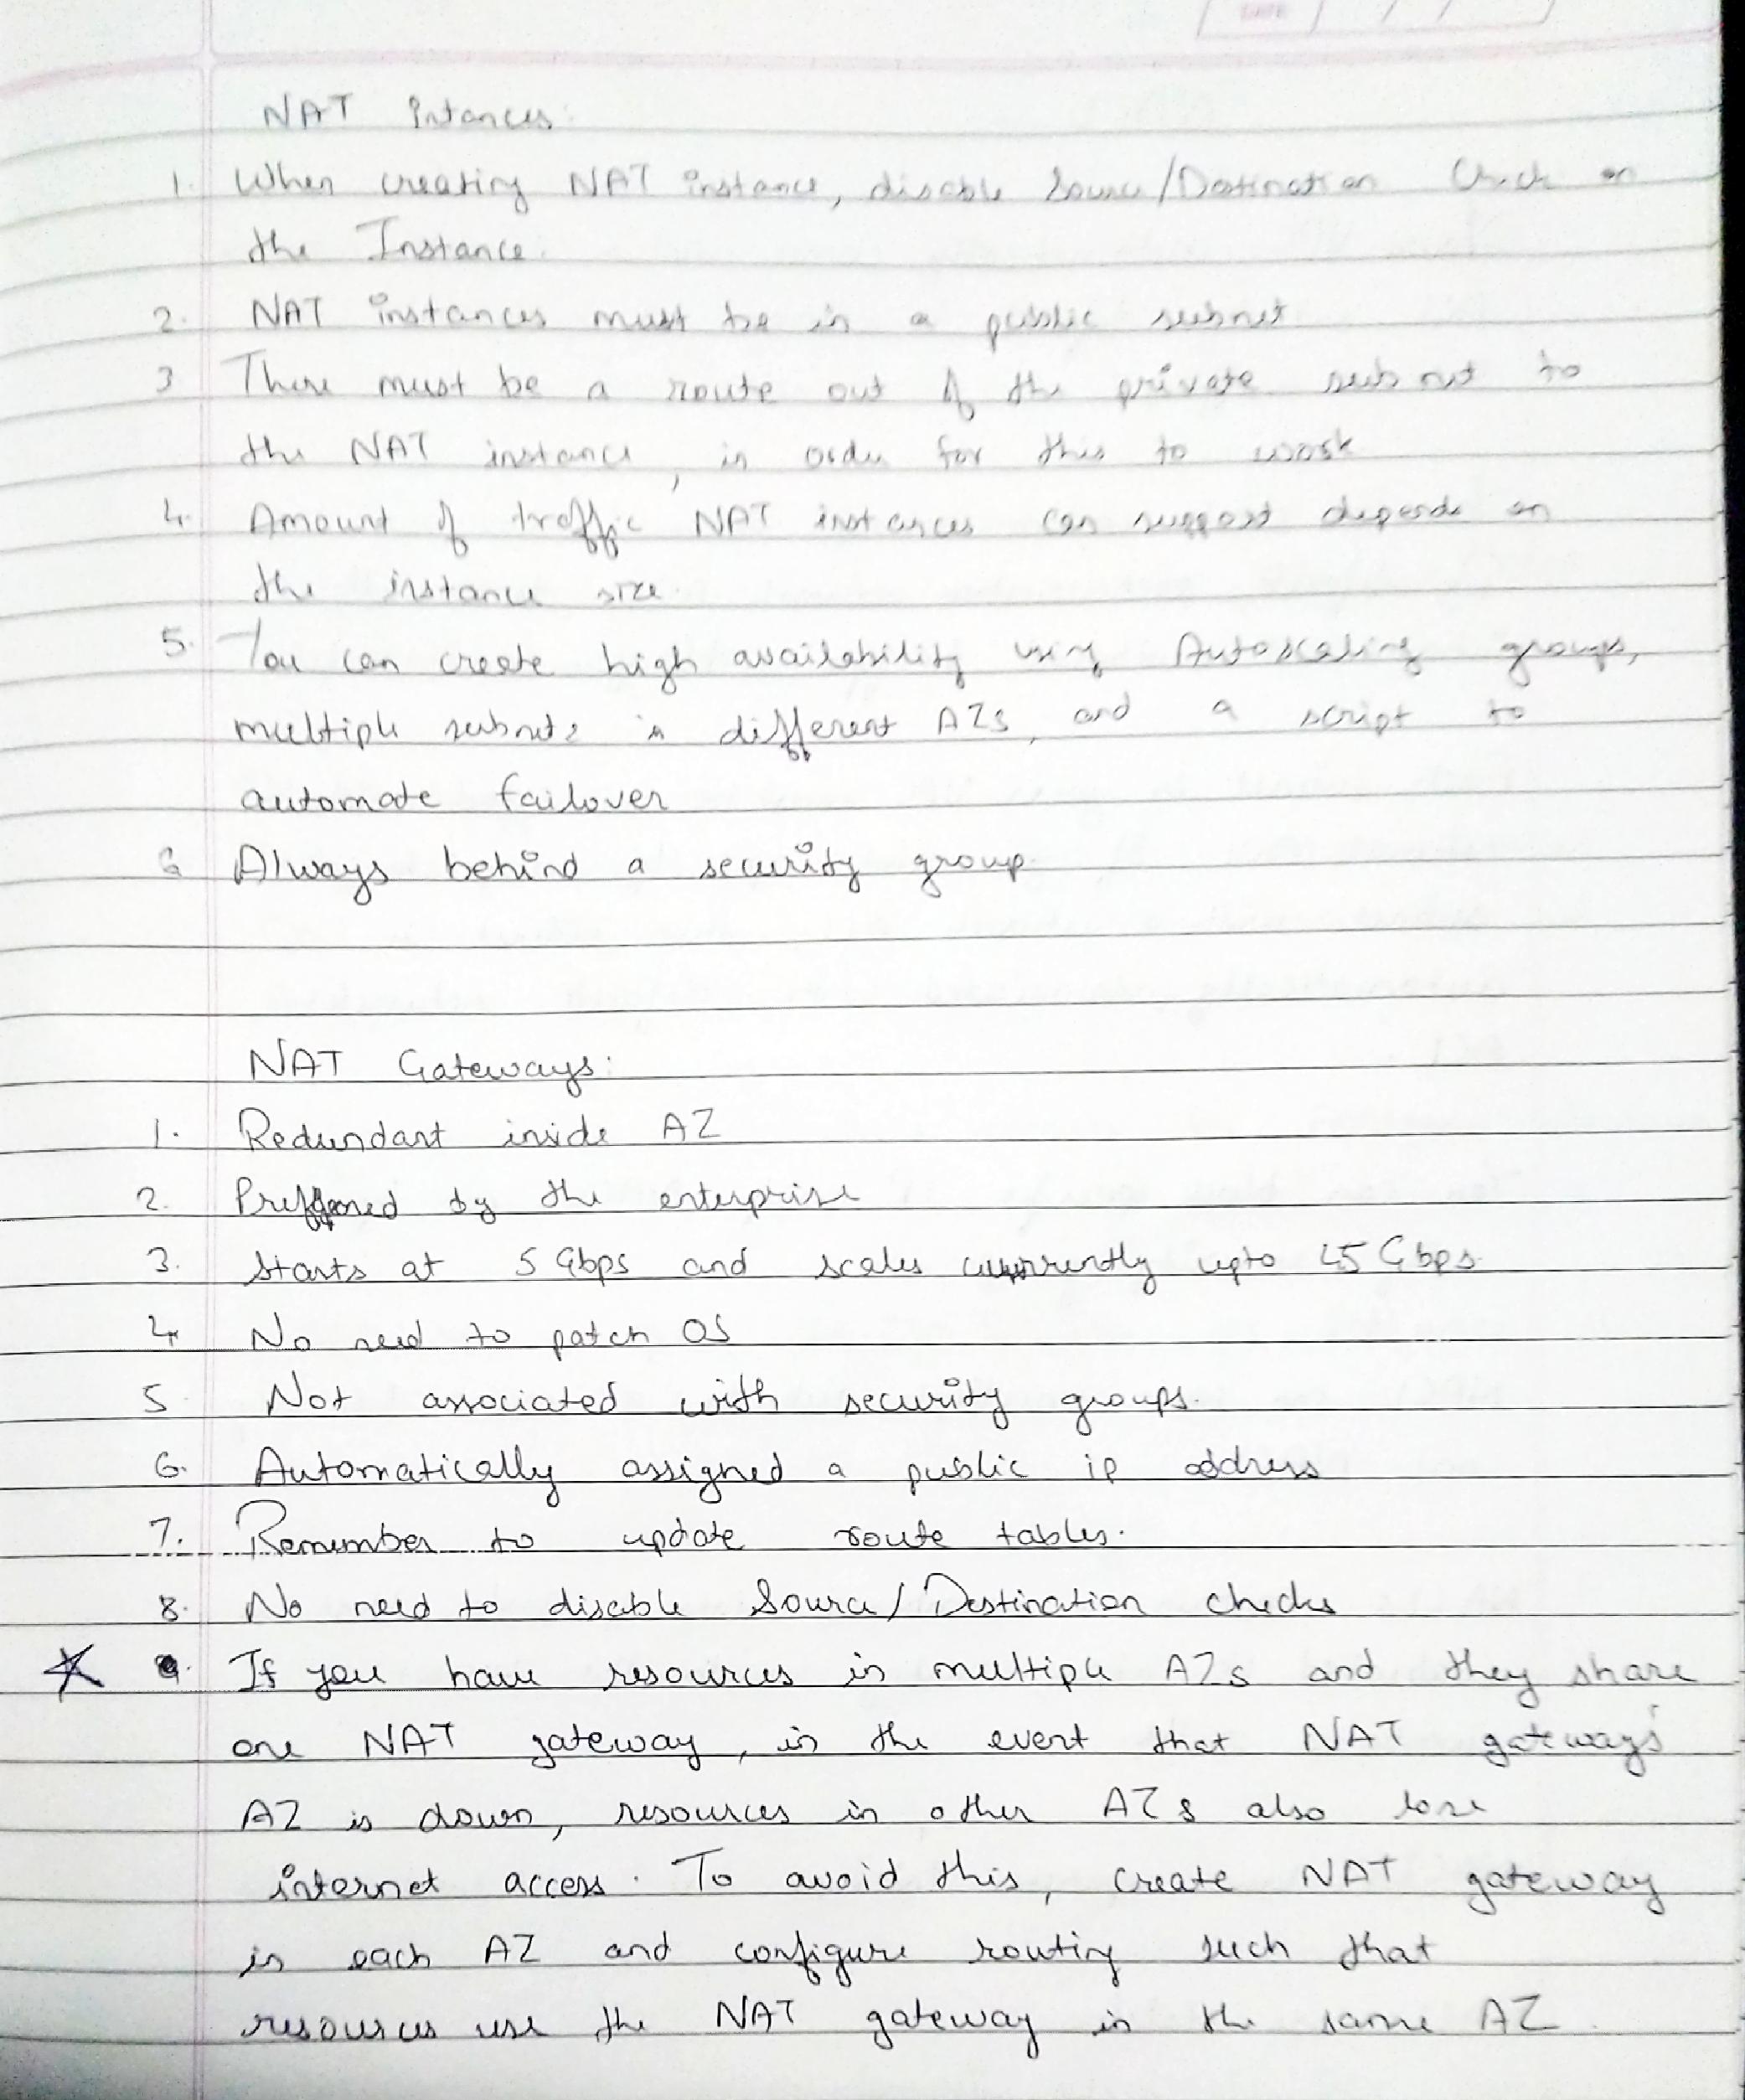 DATE / /
NAT Intances:
1. When creating NAT instance, disable Source/Destination Check on
the Instance.
2. NAT instances must be in a public subnet
3 There must be a route out of the private subnet to
the NAT instance, in order for this to work
4. Amount of traffic NAT instances can support depends on
the instance size.
5. You can create high availability using Autoscaling groups,
multiple subnets in different AZs, and a script to
automate failover
6 Always behind a security group.
NAT Gateways:
1. Redundant inside AZ
2. Preffered by the enterprise
3. Starts at 5 Gbps and scales currently upto 45 Gbps.
4. No need to patch OS
5 Not associated with security groups.
6. Automatically assigned a public ip address
7. Remember to update route tables.
8. No need to disable Source/Destination checks
9. If you have resources in multiple AZs and they share
one NAT gateway, in the event that NAT gateways'
AZ is down, resources in other AZs also lose
internet access. To avoid this, create NAT gateway
in each AZ and configure routing such that
resources use the NAT gateway in the same AZ.